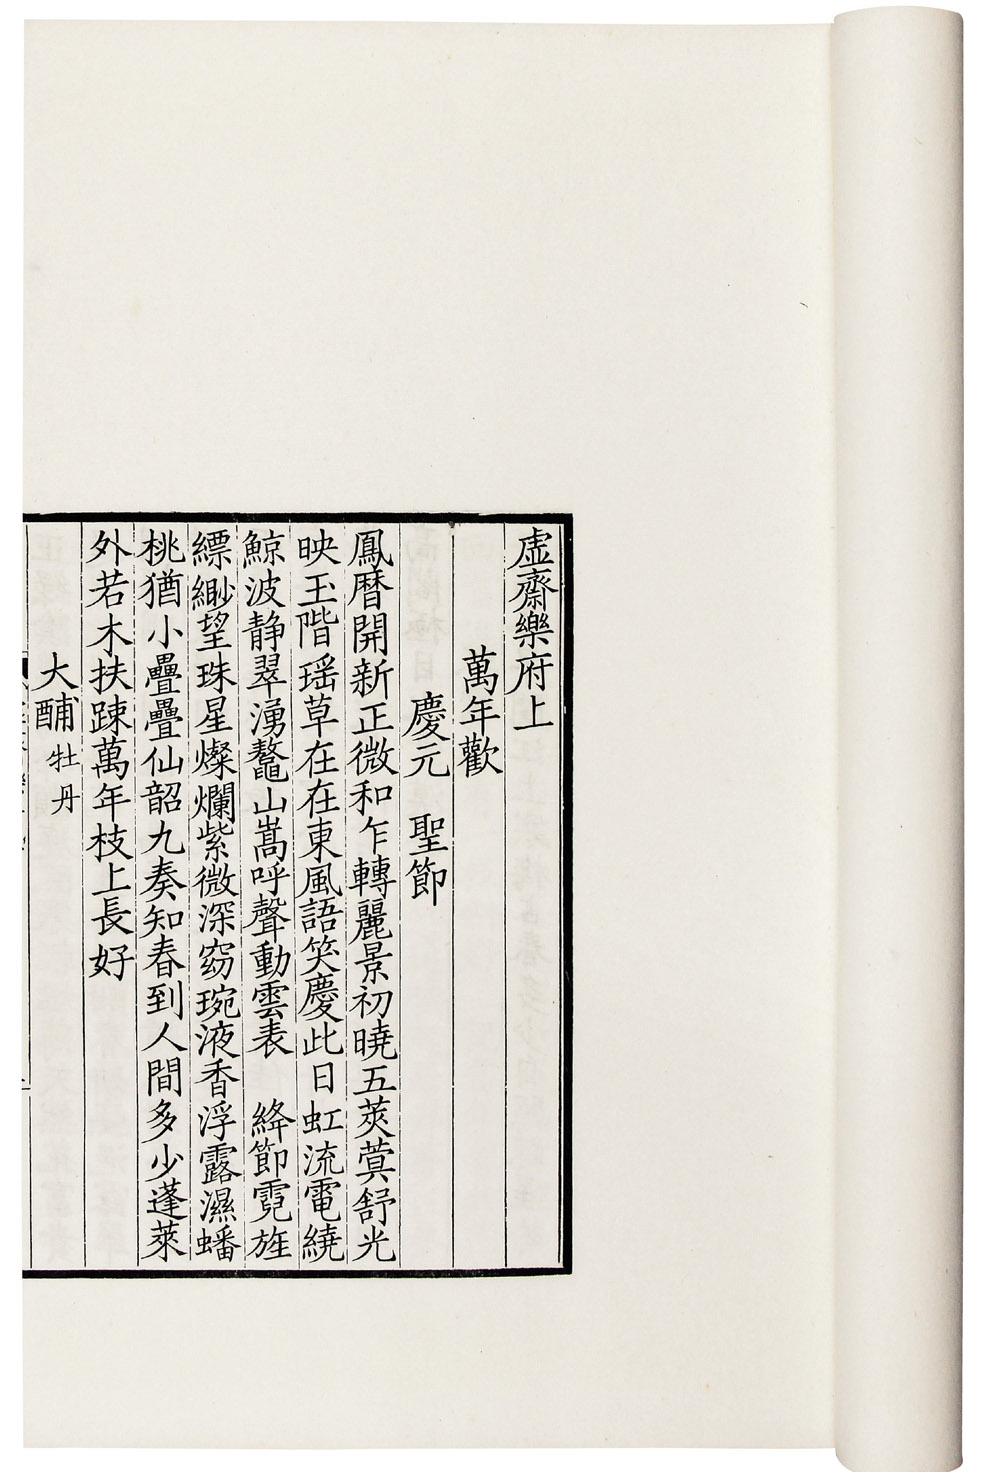 虛齋樂府上
萬年歡
慶元　聖節
鳳曆開新正微和乍轉麗景初曉五莢蓂舒光
映玉階瑶草在在東風語笑慶此日虹流電繞
鯨波静翠湧鼇山嵩呼聲動雲表　絳節霓旌
縹緲望珠星燦爛紫微深窈琬液香浮露濕蟠
桃猶小疊疊仙韶九奏知春到人間多少蓬萊
外若木扶踈萬年枝上長好
大酺牡丹